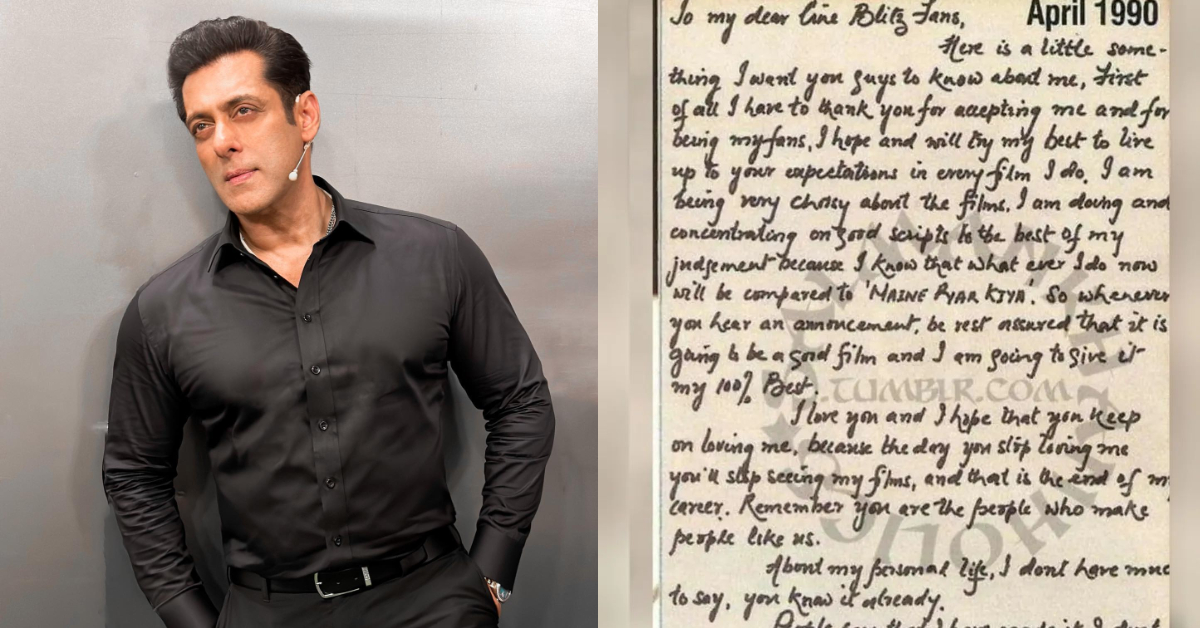 To my dear Cine Blitz Fans,
April 1990
Here is a little some-
thing I want you guys to know about me, First
of all I have to thank you for accepting me and for
being my fans, I hope and will try my best to live
up to your expectations in every film I do. I am
being very choisy about the films. I am doing and
concentrating on good scripts to the best of my
judgement because I know that what ever I do now
will be compared to 'MAINE PYAR KIYA'. So whenever
you hear an annoncement, be rest assured that it is
going to be a good film and I am going to give it
my 100% Best.
I love you and I hope that you keep
on loving me, because the day you stop loving me
you'll stop seeing my films, and that is the end of my
career. Remember you are the people who make
people like us.
About my personal life, I dont have muc
to say, you know it already.
People say that I have made it I dont
.TUMBLR.COM